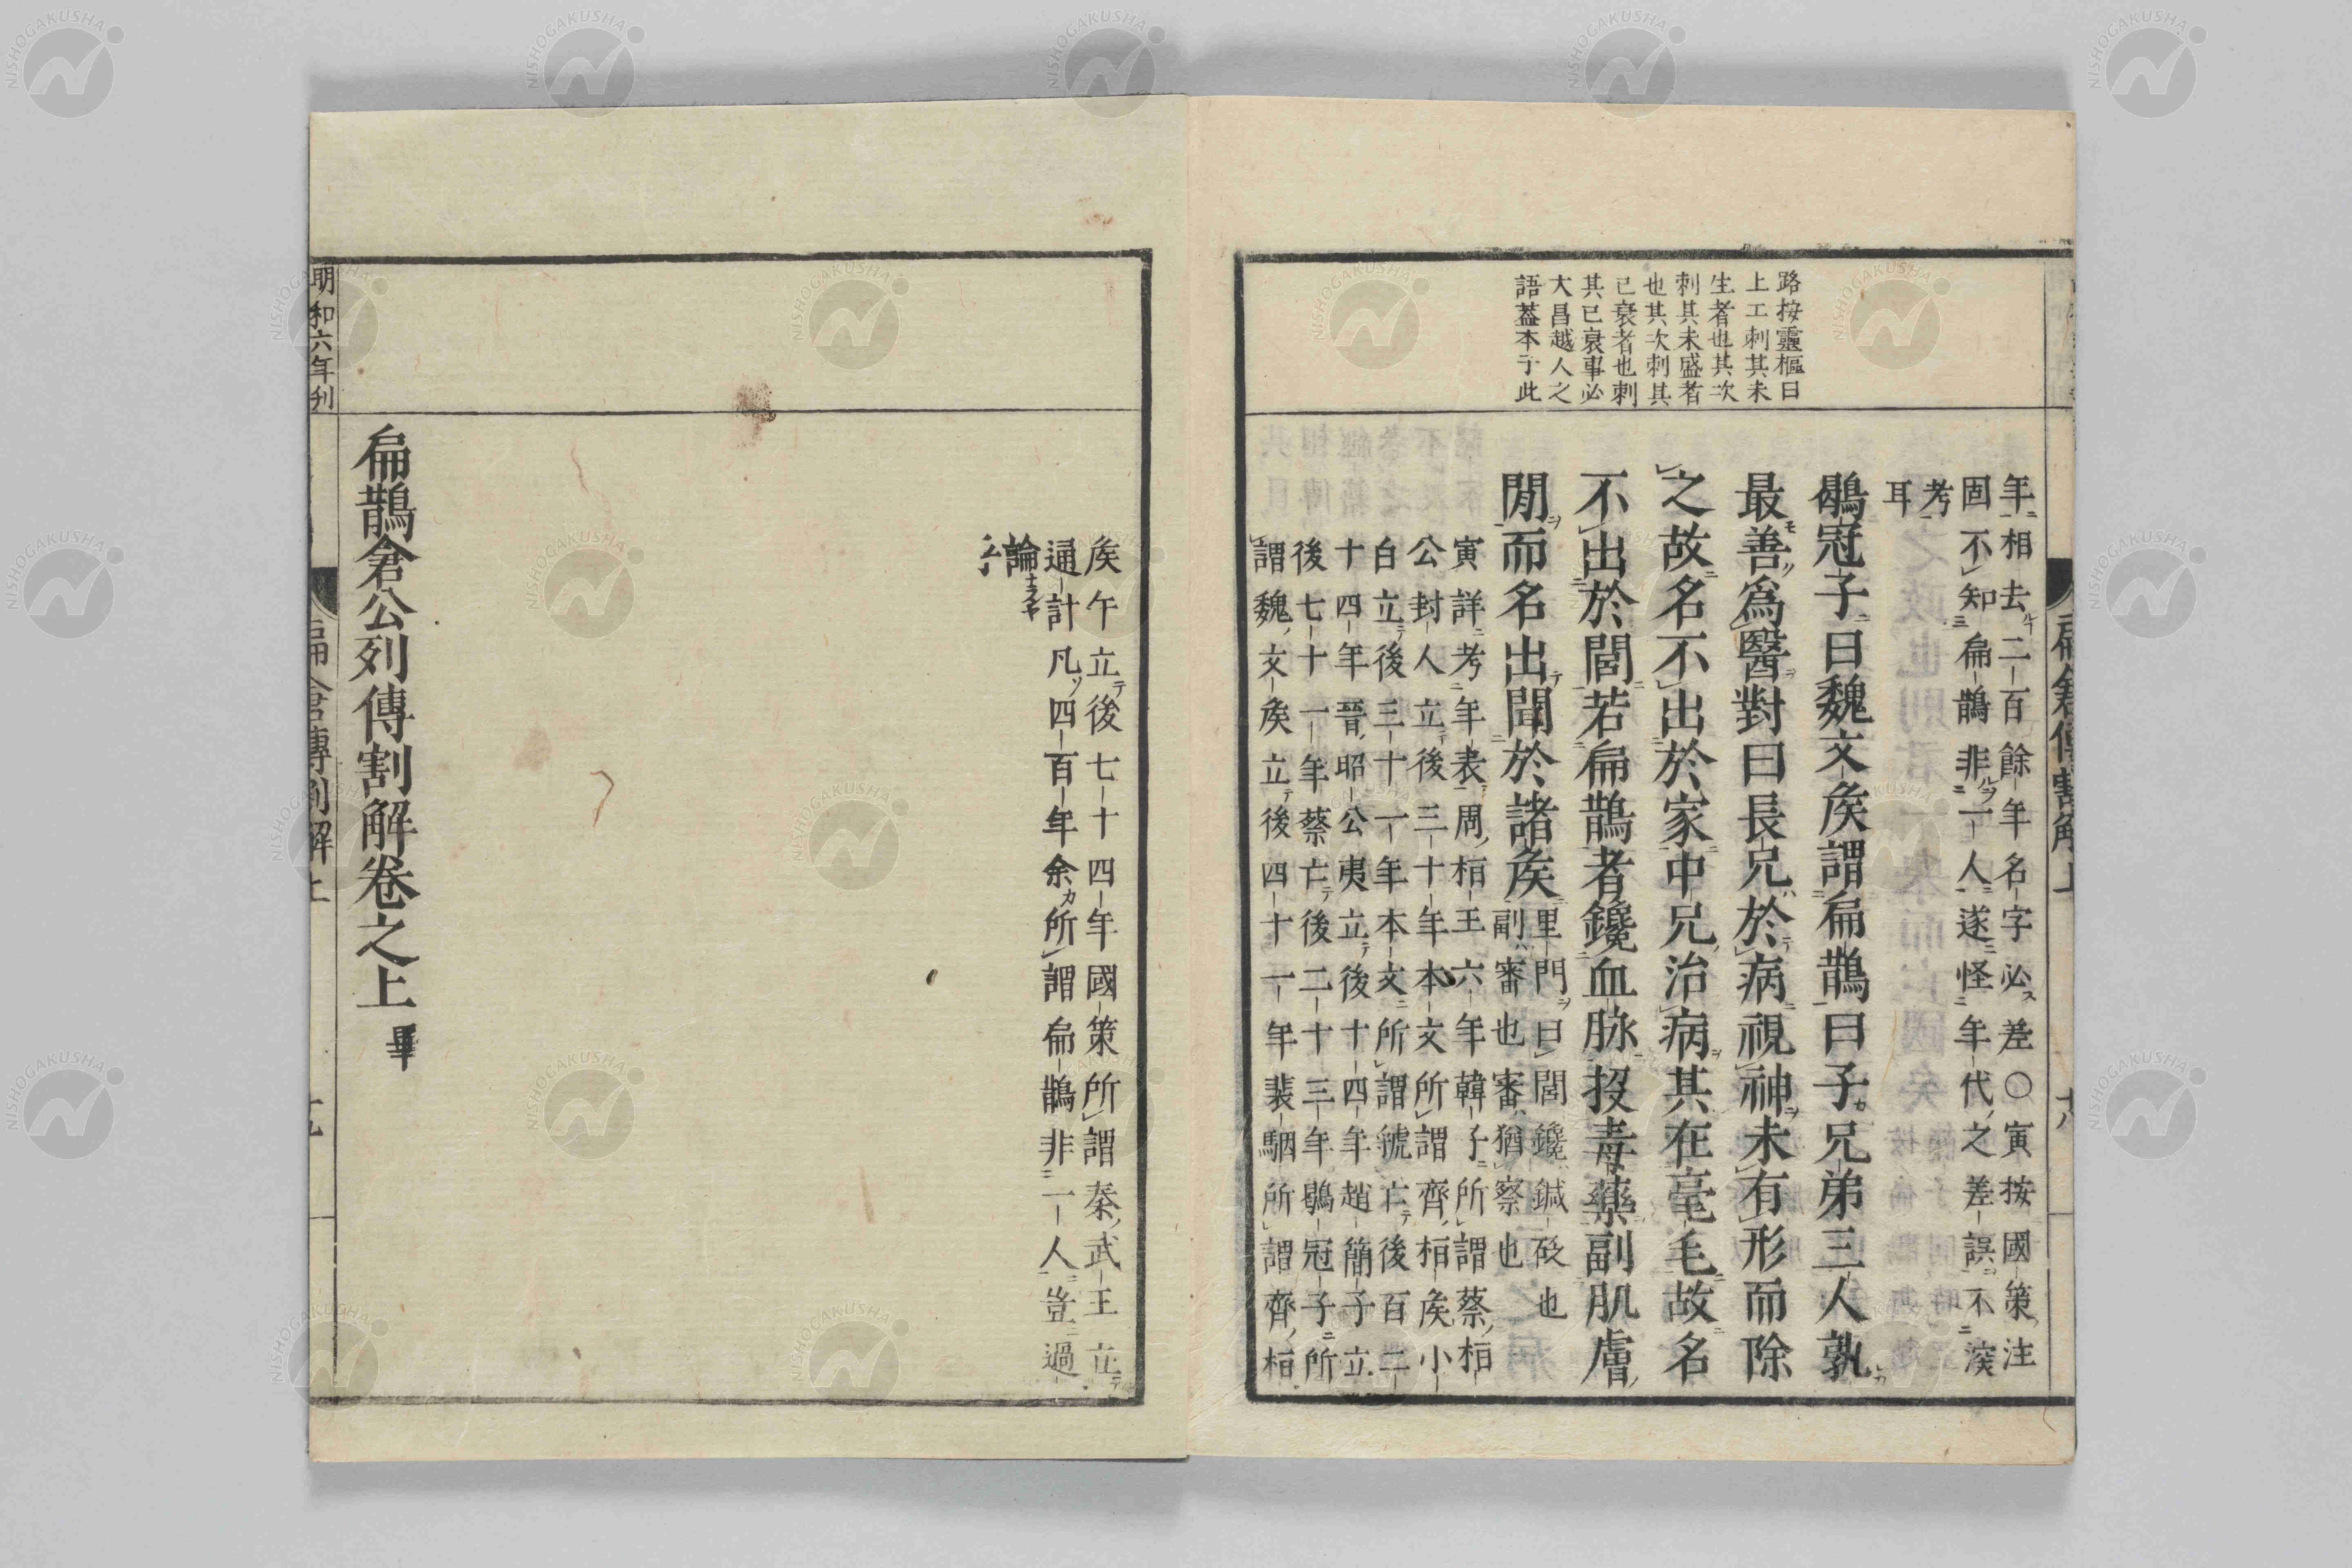 路按靈樞曰
上工刺其未
生者也其次
刺其未盛者
也其次刺其
已衰者也刺
其已衰事必
大昌越人之
語葢本于此
年相去二百餘年名字必差〇寅按國策注
固不知扁鵲非一人遂怪年代之差誤不深
考
耳
鶡冠子曰魏文矦謂扁鵲曰子兄弟三人孰
最善爲醫對曰長兄於病視神未有形而除
之故名不出於家中兄治病其在毫毛故名
不出於閭若扁鵲者鑱血脉投毒藥副肌膚
閒而名出聞於諸矦
里門曰閭鑱鍼砭也
副審也審猶察也
寅詳考年表周桓王六年韓子所謂蔡桓
公封人立後三十年本文所謂齊桓矦小
白立後三十一年本文所謂虢亡後百二
十四年晉昭公夷立後十四年趙簡子立
後七十一年蔡亡後二十三年鶡冠子所
謂魏文矦立後四十一年裴駰所謂齊桓
矦午立後七十四年國策所謂秦武王立
通計凡四百年余所謂扁鵲非一人豈過
論
乎
扁鵲倉公列傳割解卷之上 畢
明和六年刊
扁倉傳割解 上
扁倉傳割解 上
NISHOGAKUSHA